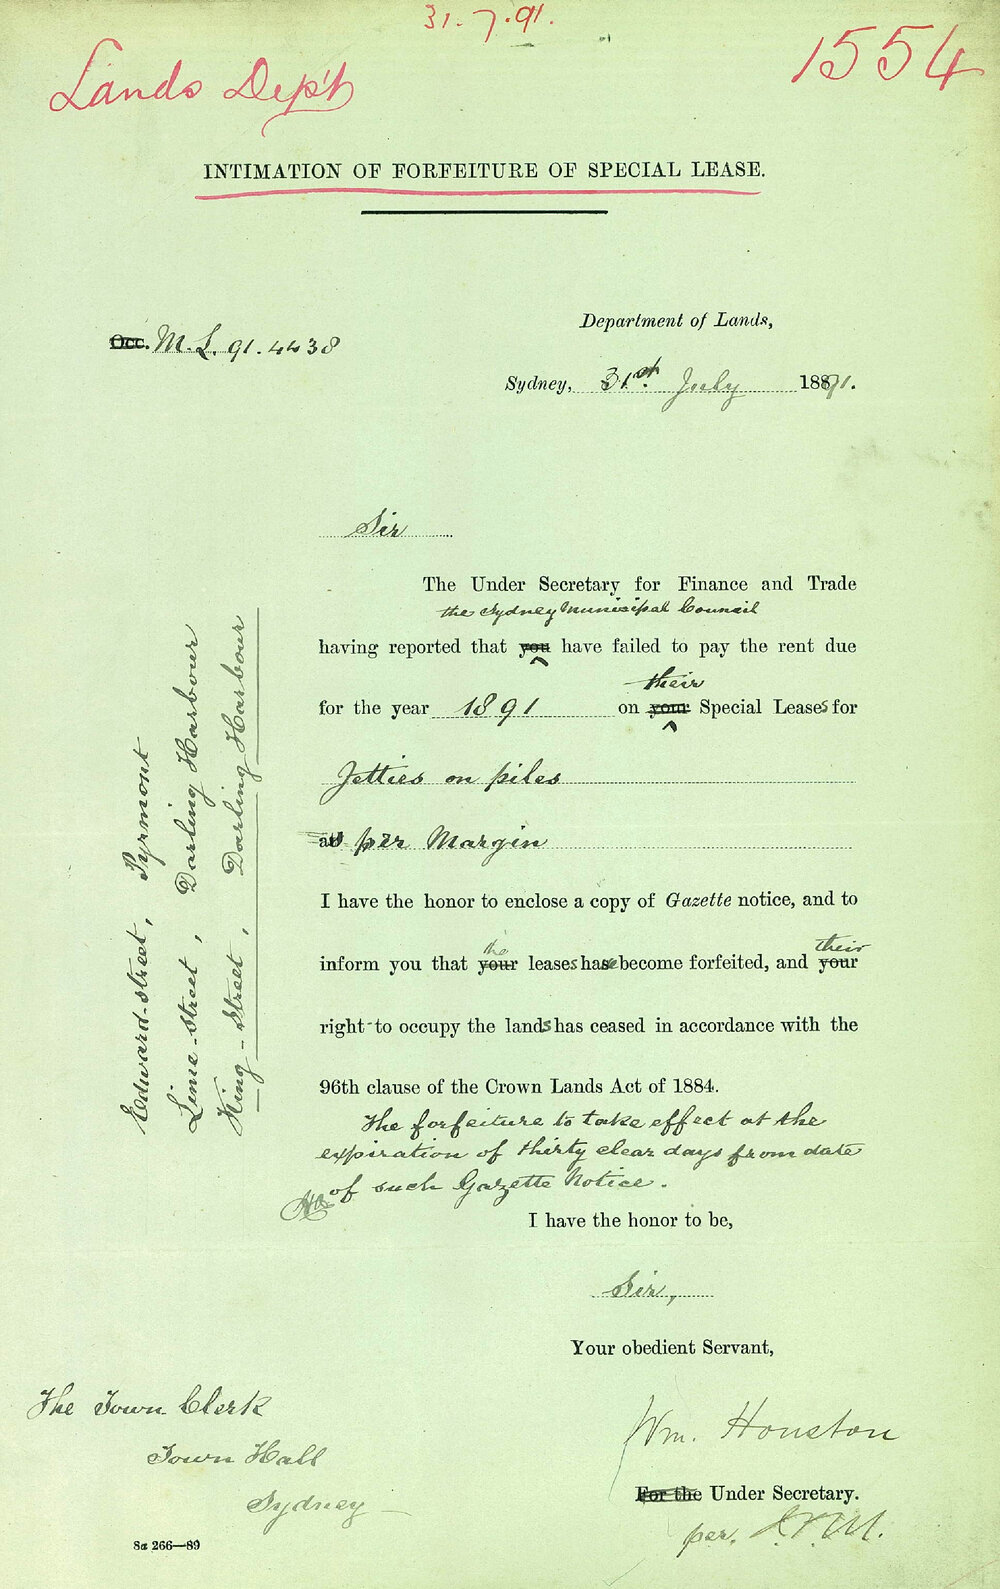 31.7.91.
1554
Lands Dep't
INTIMATION OF FORFEITURE OF SPECIAL LEASE.
Department of Lands,
Occ. M.L. 91.4438
Sydney, 31st July 1891.
Sir
The Under Secretary for Finance and Trade
the Sydney Municipal Council
having reported that you have failed to pay the rent due
their
for the year 1891 on your Special Leases for
Jetties on piles
as per Margin
Edward-street, Pyrmont
Lime-street, Darling Harbour
King-street, Darling Harbour
I have the honor to enclose a copy of Gazette notice, and to
the their
inform you that your leases have become forfeited, and your
right to occupy the lands has ceased in accordance with the
96th clause of the Crown Lands Act of 1884.
The forfeiture to take effect at the
expiration of thirty clear days from date
of such Gazette Notice.
I have the honor to be,
Sir,
Your obedient Servant,
The Town Clerk
Town Hall
Sydney
Wm. Houston
For the Under Secretary.
per.
8a 266—89